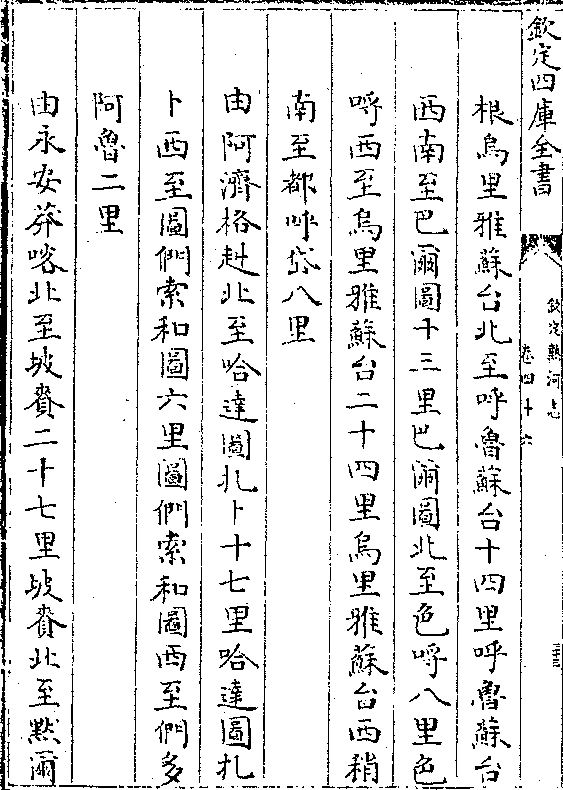 欽定四庫全書
欽定熱河志
卷四十六
根烏里雅蘇台北至呼魯蘇台十四里呼魯蘇台
西南至巴爾圖十三里巴爾圖北至色呼八里色
呼西至烏里雅蘇台二十四里烏里雅蘇台西稍
南至都呼岱八里
由阿濟格赳北至哈達圖扎卜十七里哈達圖扎
卜西至圖們索和圖六里圖們索和圖西至們多
阿魯二里
由永安莽喀北至坡賚二十七里坡賚北至默爾